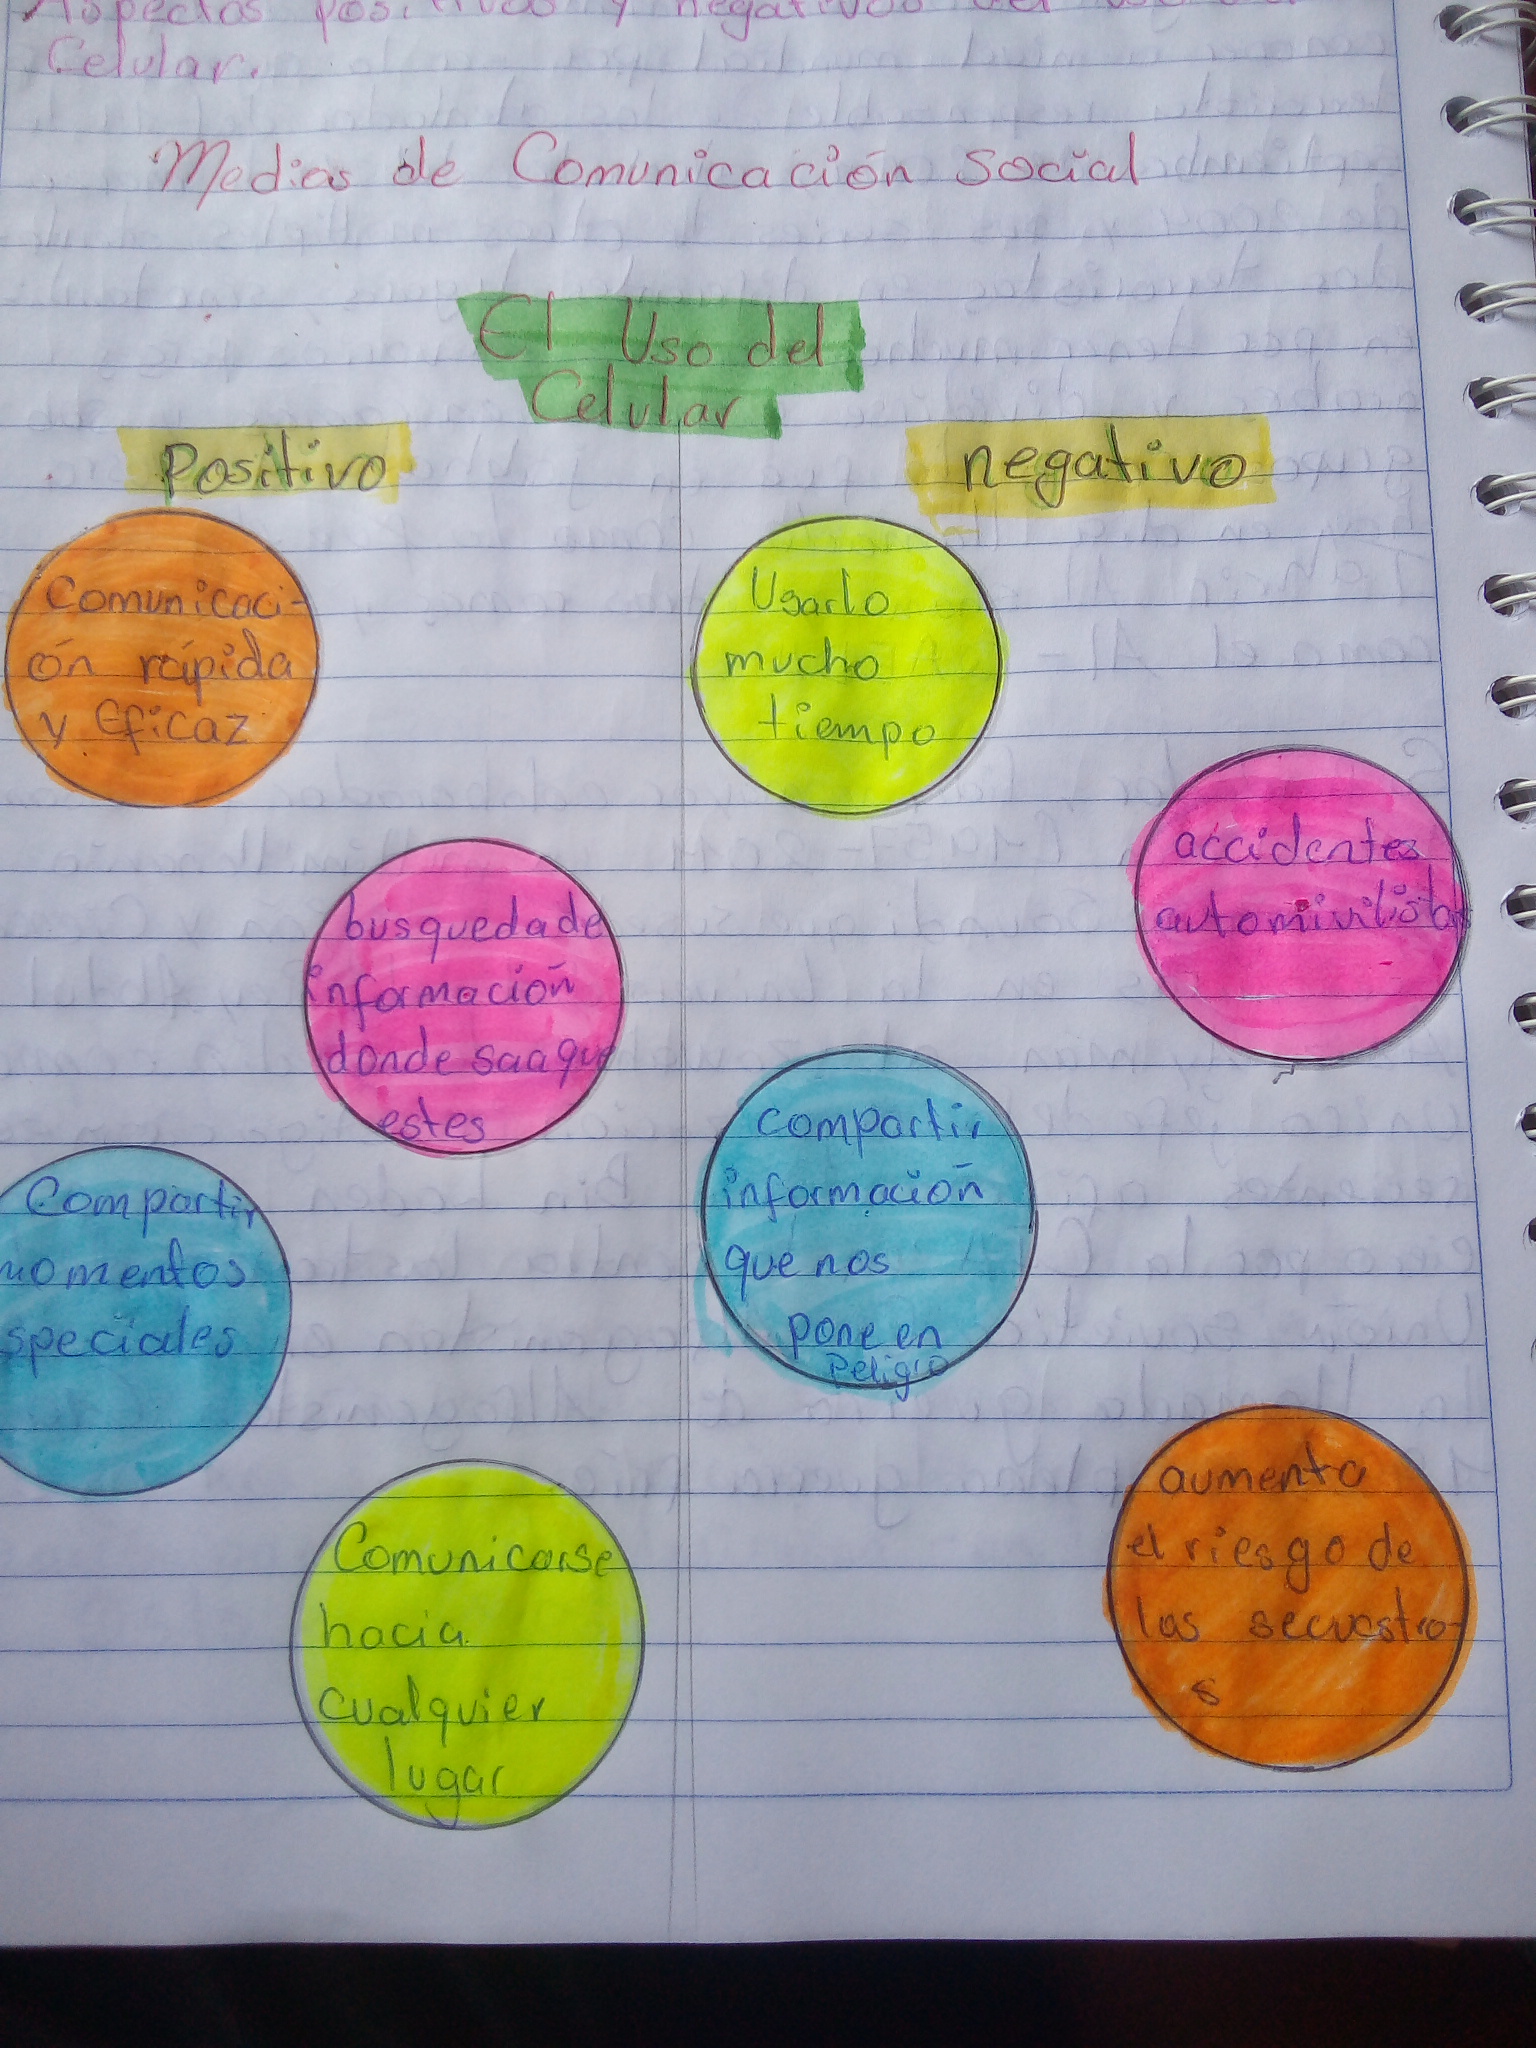 Aspectos positivos y negativos del uso del
Celular.
Medios de Comunicación Social
El Uso del
Celular
Positivo
negativo
Comunicaci-
ón rápida
y Eficaz
busqueda de
información
donde sea que
estes
Compartir
momentos
speciales
Comunicarse
hacia
cualquier
lugar
Usarlo
mucho
tiempo
accidentes
automivilistas
compartir
información
que nos
pone en
Peligro
aumenta
el riesgo de
los secuestro-
s